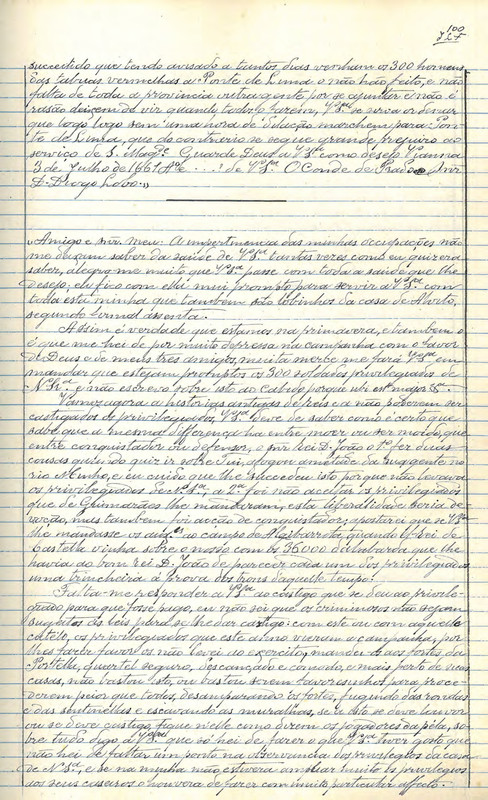 100
succedido que tendo avisado a tantos dias venham os 300 homens
das tabuas vermelhas a Ponte de Lima o não hão feito, e não
falta de toda a provincia outra gente por se ajuntar e não é
rasão deixem de vir quando todos o fazem, V.Sª se sirva ordenar
que logo logo sem uma hora de dilação marchem para Pon-
te de Lima, que do contrario se segue grande prejuizo ao
serviço de S. Magde Guarde Deus a V.Sª como desejo Vianna
3 de Julho de 1661 de V.Sª O Conde de Prado Snr
D. Diogo Lobo.»
«Amigo e snr. meu. A impertinencia das minhas occupações não
me deixam saber da saúde de V.Sª tantas vezes como eu quizera
saber, alegro-me muito que V.Sª passe com toda a saúde que lhe
desejo, eu fico com ella mui prompto para servir a V.Sª com
toda esta minha que tambem são lobinhos da casa de Alvito,
segundo formal assenta.
Assim é verdade que estamos na primavera, e tambem o
é que me hei de por muito depressa na campanha com o favor
de Deus e de meus tres amigos, muita mercê me fará V.Sª em
mandar que estejam promptos os 300 soldados privilegiados de
N. Sª e não escrevo sobre isto ao Cabido porque
Vamos agora a historias antigas de reis e a não poderem ser
castigados os privilegiados, V.Sª deve de saber como é certo que
sabe que a mesma differença ha entre moer ou ser moido, que
entre conquistador ou defensor, e por isso D. João o 1º fez duas
cousas quando quiz ir sobre Tui, afogou ametade da sua gente no
rio Minho, e eu cuido que lhe succedeu isto porque não levava
os privilegiados de N. Sª, a 2ª foi não aceitar os privilegiados
que de Guimarães lhe mandaram, esta liberalidade seria de-
voção, mas tambem foi acção de conquistador; apostarei que se V.Sª
lhe mandasse os ao campo de Algibarrota, quando el-rei de
Castella vinha sobre o nosso com os 36000 que lhe
havia ao bom rei D. João de parecer cada um dos privilegiados
uma trincheira á prova dos trons d'aquelle tempo!
Falta-me responder a V.Sª ao castigo que se deu ao privile-
giado para que fosse pago, eu não sei que os criminosos não sejam
sugeitos ás leis para se lhe dar castigo: com este ou com aquelle
os privilegiados que este anno vieram á campanha, por
lhes fazer favor os não levei ao exercito, mandei-os aos fortes da
Portella, quartel seguro, descançado e commodo, e mais perto de suas
casas, não bastou isto, ou bastou serem favorecidos para proce-
derem peior que todos, desamparando os fortes, fugindo das rondas
e das sentinellas e escavando as muralhas, se isto se deve louvar
ou se deve castigar fique n'elle como dizem os jogadores da péla, so-
bre tudo digo a V.Sª que só hei de fazer o que V.Sª tiver gosto que
não hei de faltar um ponto na observancia dos privilegios da casa
de N. Sª, e se na minha mão estivera ampliar muito os privilegios
aos seus caseiros o houvera de fazer com muito particular affecto.